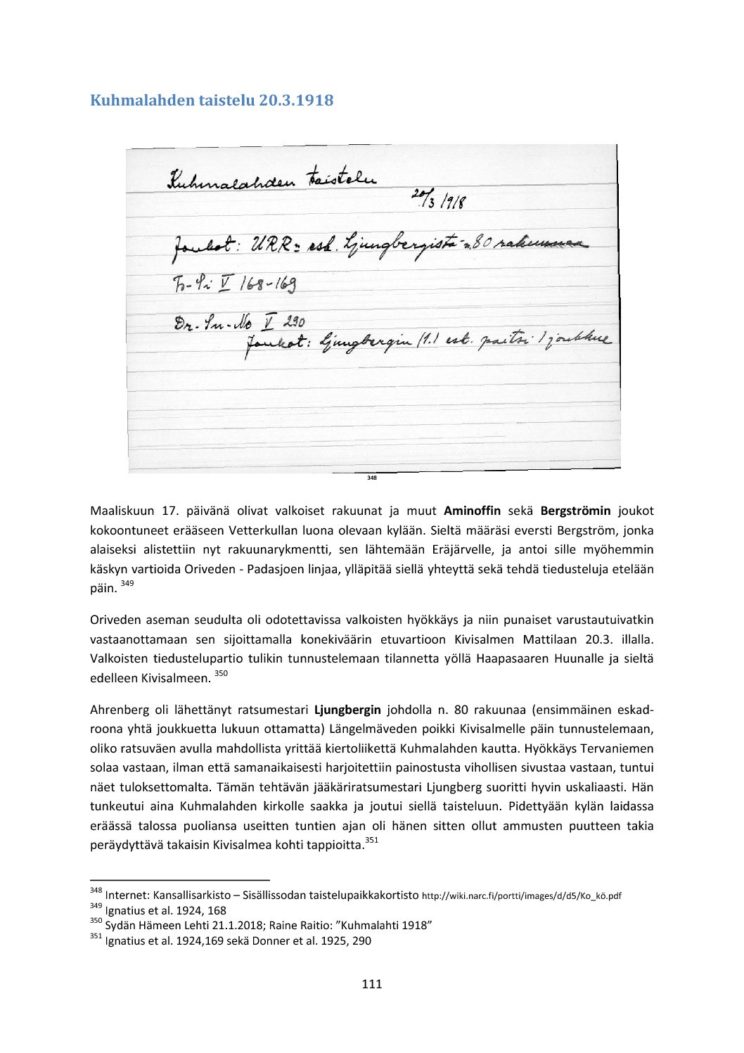 Kuhmalahden taistelu 20.3.1918
Kuhmalahden taistelu
20/3 1918
Joukot: URR: esk. Ljungbergista n. 80 rakuunaa
V 168-169
V 290
Joukot: Ljungbergin (1.) esk. paitsi 1 joukkue
348
Maaliskuun 17. päivänä olivat valkoiset rakuunat ja muut Aminoffin sekä Bergströmin joukot
kokoontuneet erääseen Vetterkullan luona olevaan kylään. Sieltä määräsi eversti Bergström, jonka
alaiseksi alistettiin nyt rakuunarykmentti, sen lähtemään Eräjärvelle, ja antoi sille myöhemmin
käskyn vartioida Oriveden - Padasjoen linjaa, ylläpitää siellä yhteyttä sekä tehdä tiedusteluja etelään
päin. 349
Oriveden aseman seudulta oli odotettavissa valkoisten hyökkäys ja niin punaiset varustautuivatkin
vastaanottamaan sen sijoittamalla konekiväärin etuvartioon Kivisalmen Mattilaan 20.3. illalla.
Valkoisten tiedustelupartio tulikin tunnustelemaan tilannetta yöllä Haapasaaren Huunalle ja sieltä
edelleen Kivisalmeen. 350
Ahrenberg oli lähettänyt ratsumestari Ljungbergin johdolla n. 80 rakuunaa (ensimmäinen eskad-
roona yhtä joukkuetta lukuun ottamatta) Längelmäveden poikki Kivisalmelle päin tunnustelemaan,
oliko ratsuväen avulla mahdollista yrittää kiertoliikettä Kuhmalahden kautta. Hyökkäys Tervaniemen
solaa vastaan, ilman että samanaikaisesti harjoitettiin painostusta vihollisen sivustaa vastaan, tuntui
näet tuloksettomalta. Tämän tehtävän jääkäriratsumestari Ljungberg suoritti hyvin uskaliaasti. Hän
tunkeutui aina Kuhmalahden kirkolle saakka ja joutui siellä taisteluun. Pidettyään kylän laidassa
eräässä talossa puoliansa useitten tuntien ajan oli hänen sitten ollut ammusten puutteen takia
peräydyttävä takaisin Kivisalmea kohti tappioitta.351
348 Internet: Kansallisarkisto – Sisällissodan taistelupaikkakortisto http://wiki.narc.fi/portti/images/d/d5/Ko_kö.pdf
349 Ignatius et al. 1924, 168
350 Sydän Hämeen Lehti 21.1.2018; Raine Raitio: ”Kuhmalahti 1918”
351 Ignatius et al. 1924,169 sekä Donner et al. 1925, 290
111